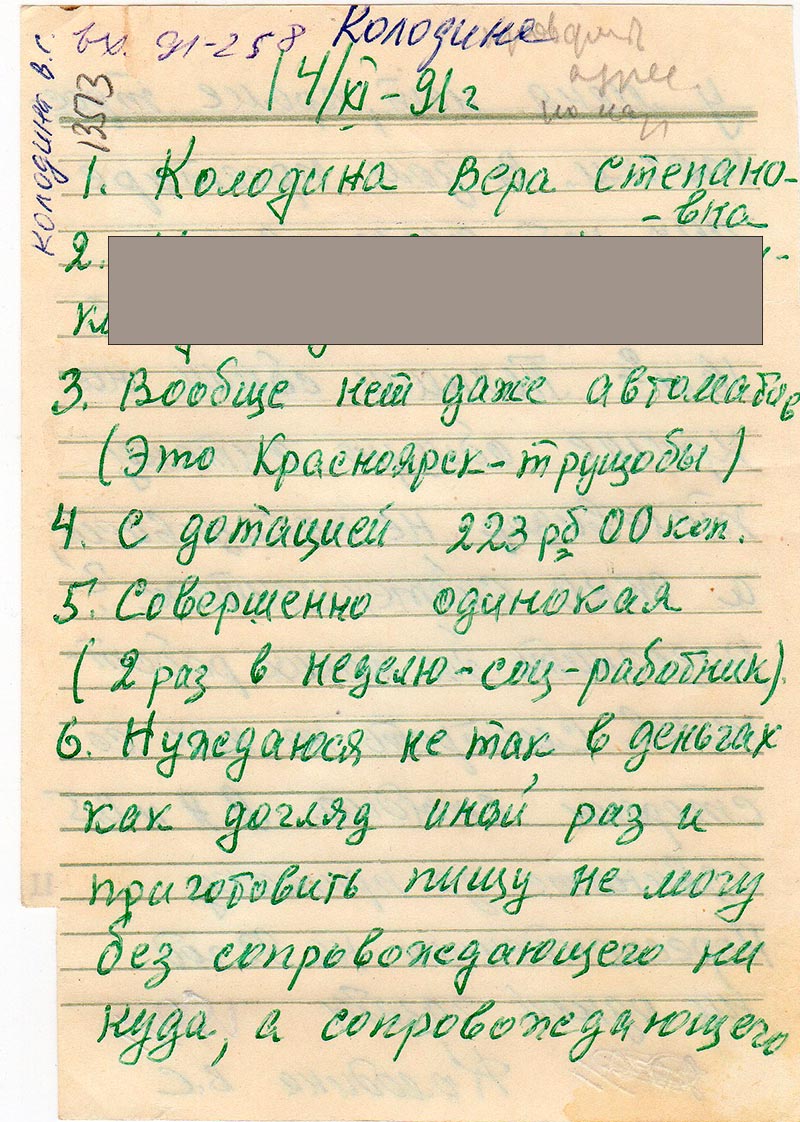 вх. 91-258 Колодине
адрес
14/XI-91г
Колодина В.С.
13573
1. Колодина Вера Степано-
-вна
2.
3. Вообще нет даже автоматов
(Это Красноярск-трущобы)
4. С дотацией 223 рб 00 коп.
5. Совершенно одинокая
(2 раз в неделю-соц-работник).
6. Нуждаюся не так в деньгах
как догляд иной раз и
приготовить пищу не могу
без сопровождающего ни
куда, а сопровождающего